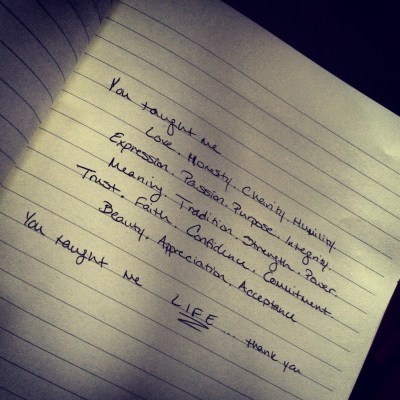 You taught me
Love. Honesty. Charity. Humility
Expression. Passion. Purpose. Integrity.
Meaning. Tradition. Strength. Power
Trust. Faith. Confidence. Commitment
Beauty. Appreciation. Acceptance
You taught me LIFE.... thank you